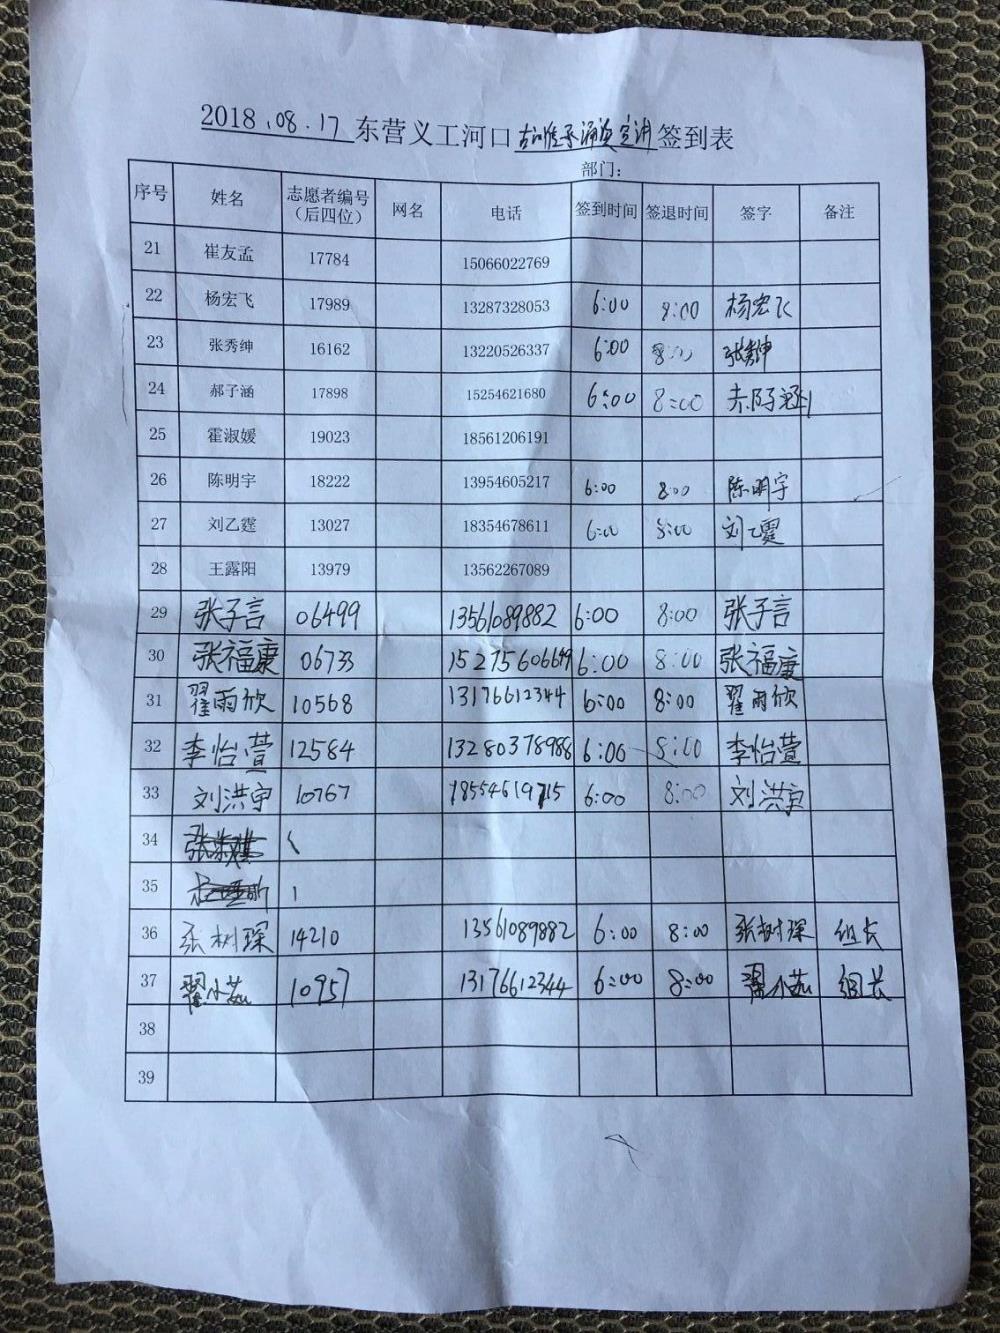 2018.08.17 东营义工河口 签到表
部门:
序号 姓名 志愿者编号（后四位） 网名 电话 签到时间 签退时间 签字 备注
21 崔友孟 17784 15066022769
22 杨宏飞 17989 13287328053 6:00 8:00 杨宏飞
23 张秀绅 16162 13220526337 6:00 8:00 张秀绅
24 郝子涵 17898 15254621680 6:00 8:00 郝子涵
25 霍淑媛 19023 18561206191
26 陈明宇 18222 13954605217 6:00 8:00 陈明宇
27 刘乙霆 13027 18354678611 6:00 8:00 刘乙霆
28 王露阳 13979 13562267089
29 张子言 06499 13561089882 6:00 8:00 张子言
30 张福康 06733 15275606699 6:00 8:00 张福康
31 翟雨欣 10568 13176612344 6:00 8:00 翟雨欣
32 李怡萱 12584 13280378988 6:00 8:00 李怡萱
33 刘洪宇 10767 18554619715 6:00 8:00 刘洪宇
34
35
36 张树琛 14210 13561089882 6:00 8:00 张树琛 组长
37 翟小茹 10957 13176612344 6:00 8:00 翟小茹 组长
38
39